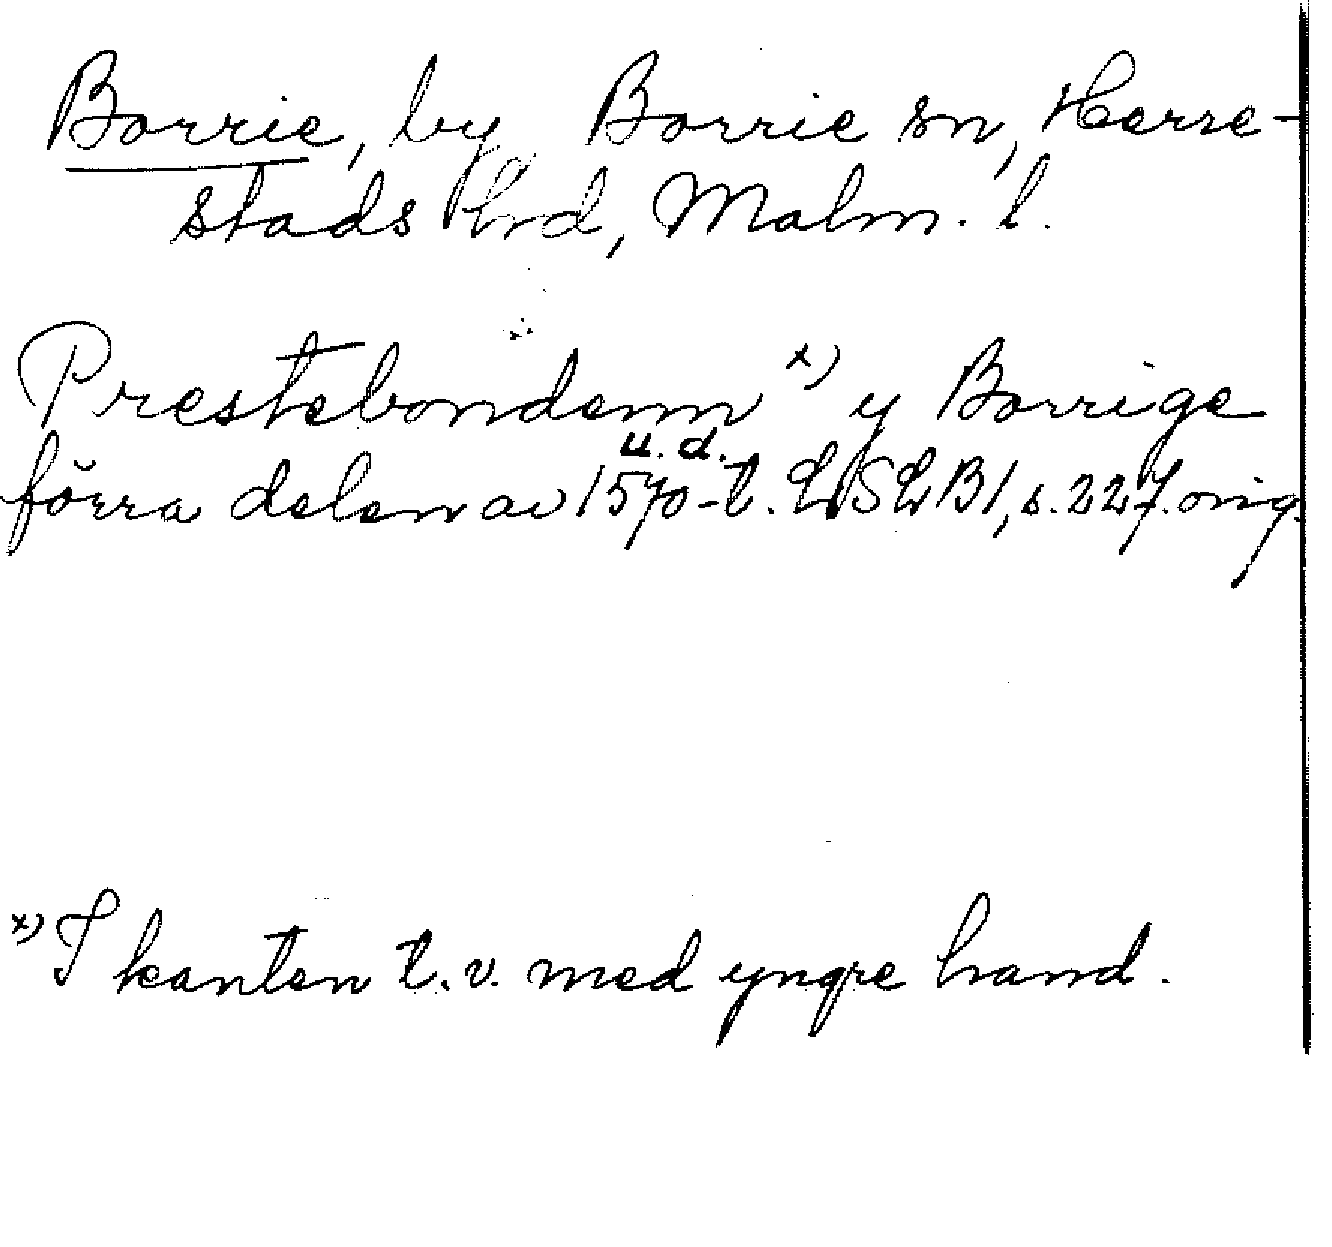 Borrie, by Borrie sn, Herre-
stads hrd, Malm. l.
Prestebondenn x) y Borrige
u. d.
förra delen av 1570-t. LSLB1, s. 227. orig.
x) I kanten t.v. med yngre hand.